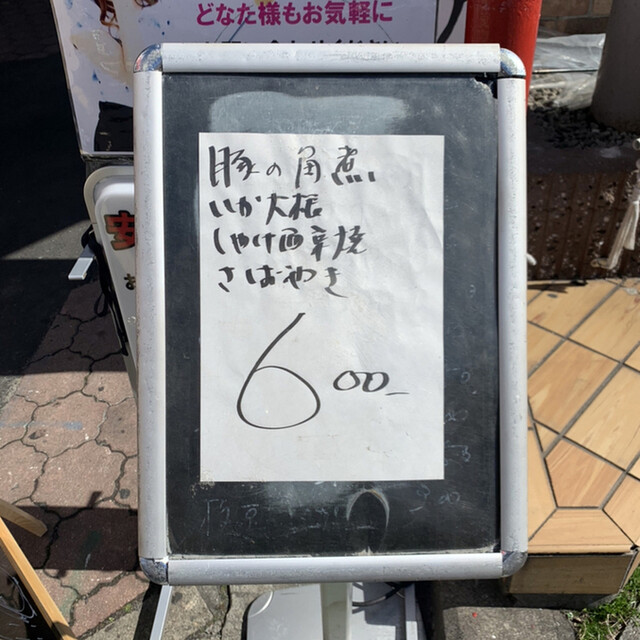 どなた様もお気軽に
豚の角煮
いか大根
しゃけ西京焼
さばやき
600-